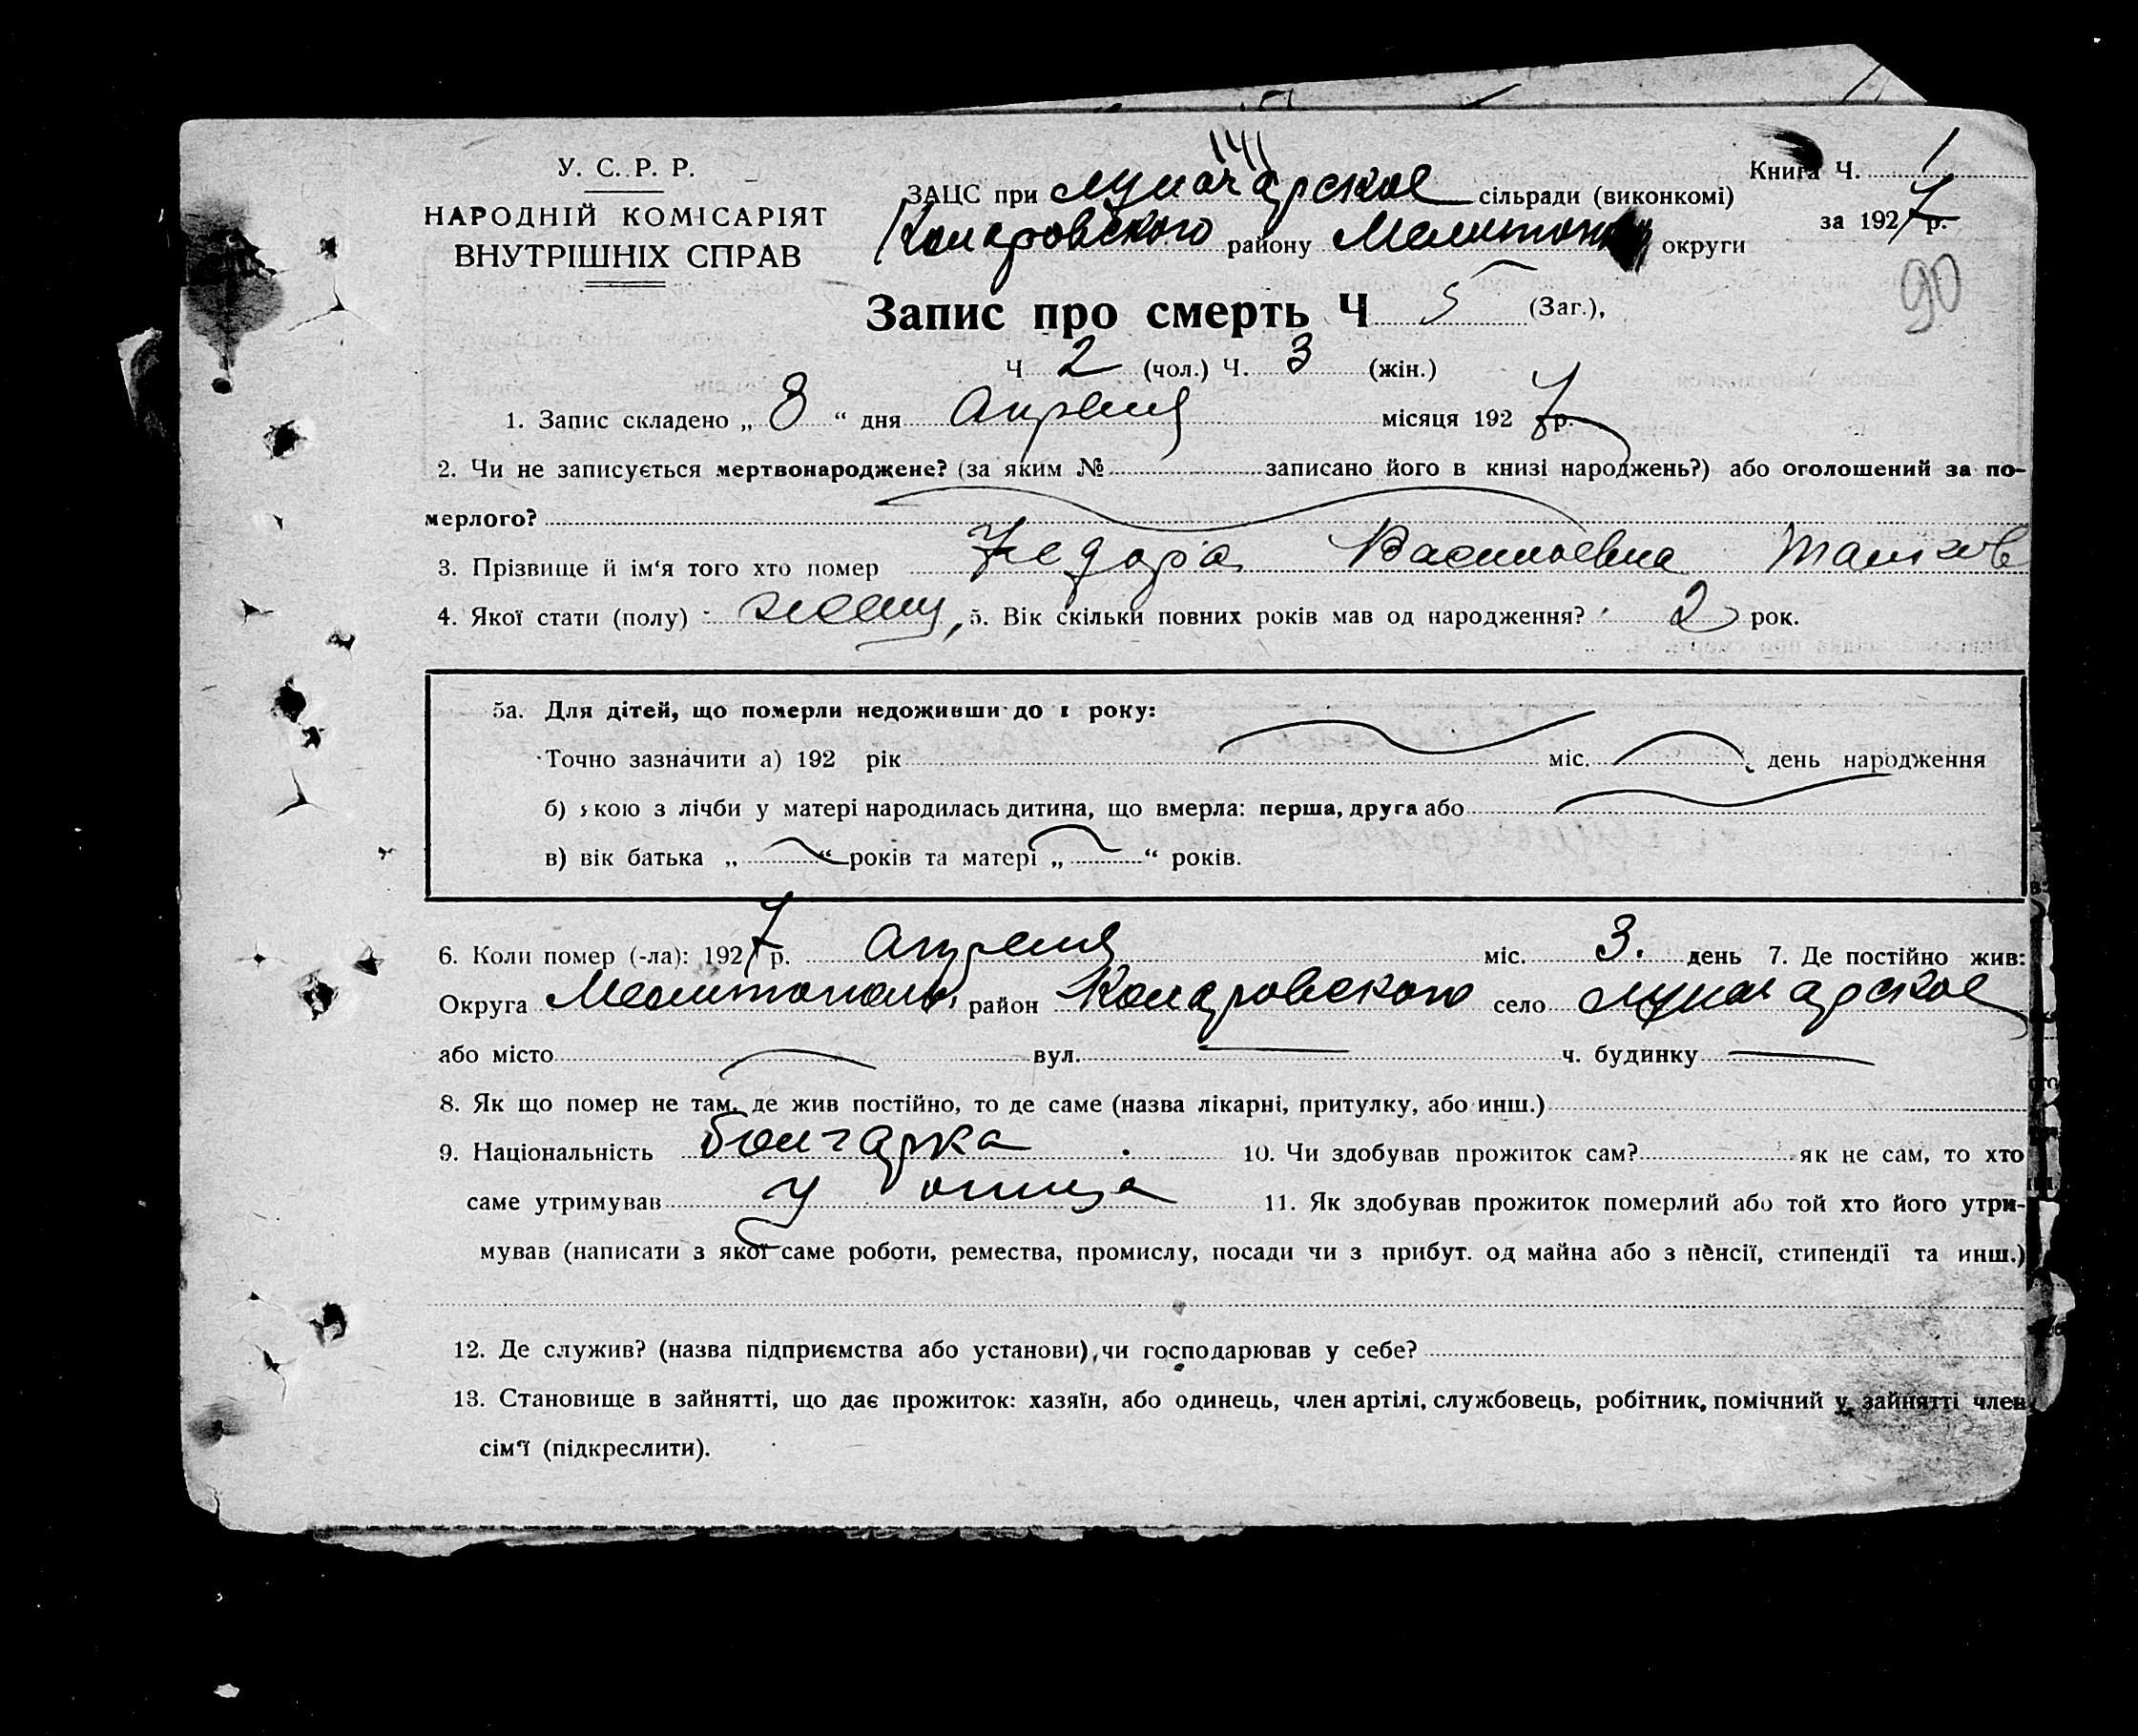 141
У. С. Р. Р.
НАРОДНІЙ КОМІСАРІЯТ
ВНУТРІШНІХ СПРАВ
ЗАЦС при Луначарское сільради (виконкомі)
Книга Ч. 1
району Мелитопол округи
за 1927 р.
90
Запис про смерть Ч 5 (Заг.),
Ч 2 (чол.) Ч. 3 (жін.)
1. Запис складено „ 8 “ дня Апреля місяця 1927 р.
2. Чи не записується мертвонароджене? (за яким № записано його в книзі народжень?) або оголошений за по-
мерлого?
3. Прізвище й ім‘я того хто помер Федора Васильевна
4. Якої стати (полу) женщ, 5. Вік скільки повних років мав од народження? 2 рок.
5а. Для дітей, що померли недоживши до 1 року:
Точно зазначити а) 192 рік міс. день народження
б) якою з лічби у матері народилась дитина, що вмерла: перша, друга або
в) вік батька „ “ років та матері „ “ років.
6. Коли помер (-ла): 1927 р. апреля міс. 3. день 7. Де постійно жив:
Округа Мелитополь, район село Луначарское
або місто вул. ч. будинку
8. Як що помер не там, де жив постійно, то де саме (назва лікарні, притулку, або инш.)
9. Національність болгарка 10. Чи здобував прожиток сам? як не сам, то хто
саме утримував у отца 11. Як здобував прожиток померлий або той хто його утри-
мував (написати з якої саме роботи, ремества, промислу, посади чи з прибут. од майна або з пенсії, стипендії та инш.)
12. Де служив? (назва підприємства або установи), чи господарював у себе?
13. Становище в зайнятті, що дає прожиток: хазяїн, або одинець, член артілі, службовець, робітник, помічний у зайнятті член
сім‘ї (підкреслити).